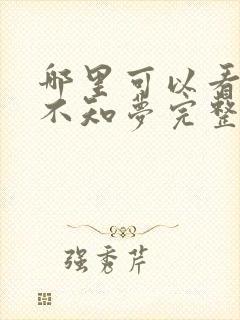 哪里可以看
不知夢完整
强秀芹